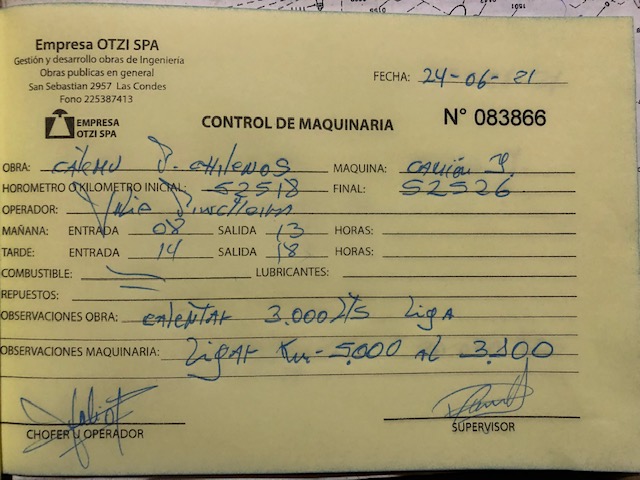 Empresa OTZI SPA
Gestión y desarrollo obras de Ingeniería
Obras publicas en general
San Sebastian 2957 Las Condes
Fono 225387413
FECHA: 24-06-21
EMPRESA
OTZI SPA
CONTROL DE MAQUINARIA
N° 083866
OBRA: P. CHILENOS MAQUINA: CAMIÓN
HOROMETRO O KILOMETRO INICIAL: 52518 FINAL: 52526
OPERADOR:
MAÑANA: ENTRADA 08 SALIDA 13 HORAS:
TARDE: ENTRADA 14 SALIDA 18 HORAS:
COMBUSTIBLE: LUBRICANTES:
REPUESTOS:
OBSERVACIONES OBRA: CALENTAR 3.000 Lts LIGA
OBSERVACIONES MAQUINARIA: LIGAR Km - 5.000 AL 3.100
CHOFER U OPERADOR
SUPERVISOR